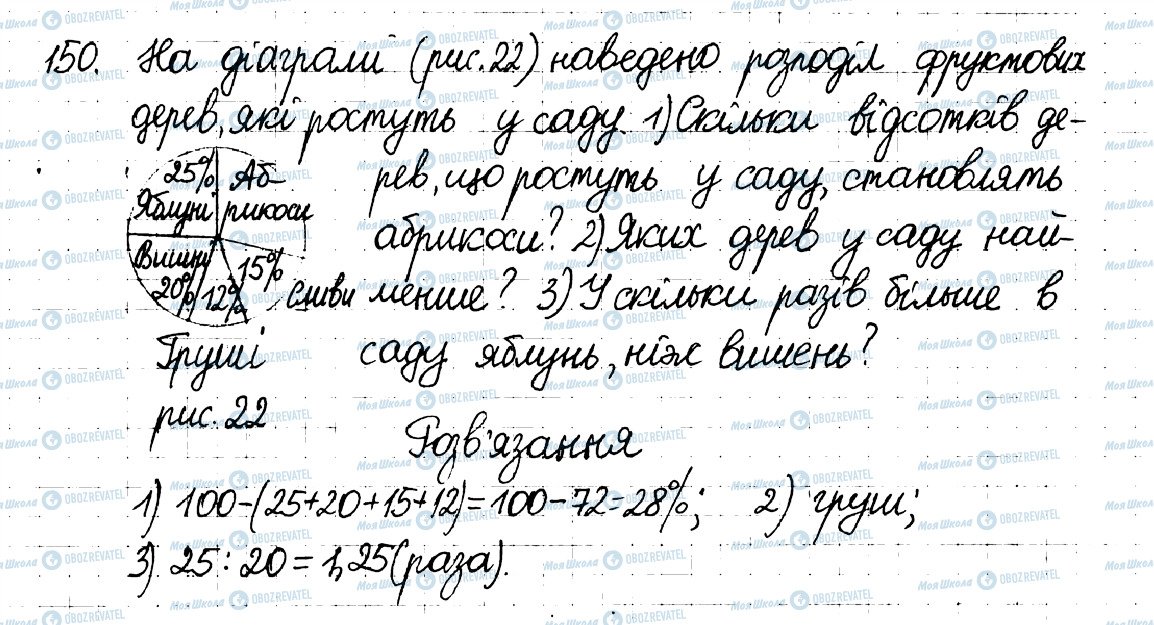 150. На діаграмі (рис.22) наведено розподіл фруктових
дерев, які ростуть у саду. 1) Скільки відсотків де-
рев, що ростуть у саду, становлять
абрикоси? 2) Яких дерев у саду най-
менше? 3) У скільки разів більше в
саду яблунь, ніж вишень?
25% Аб-
Яблуні рикоси
Вишні 15%
20% 12% Сливи
Груші
рис. 22
Розв'язання
1) 100-(25+20+15+12)=100-72=28%; 2) груші;
3) 25:20=1,25(раза).
Моя Школа OBOZREVATEL